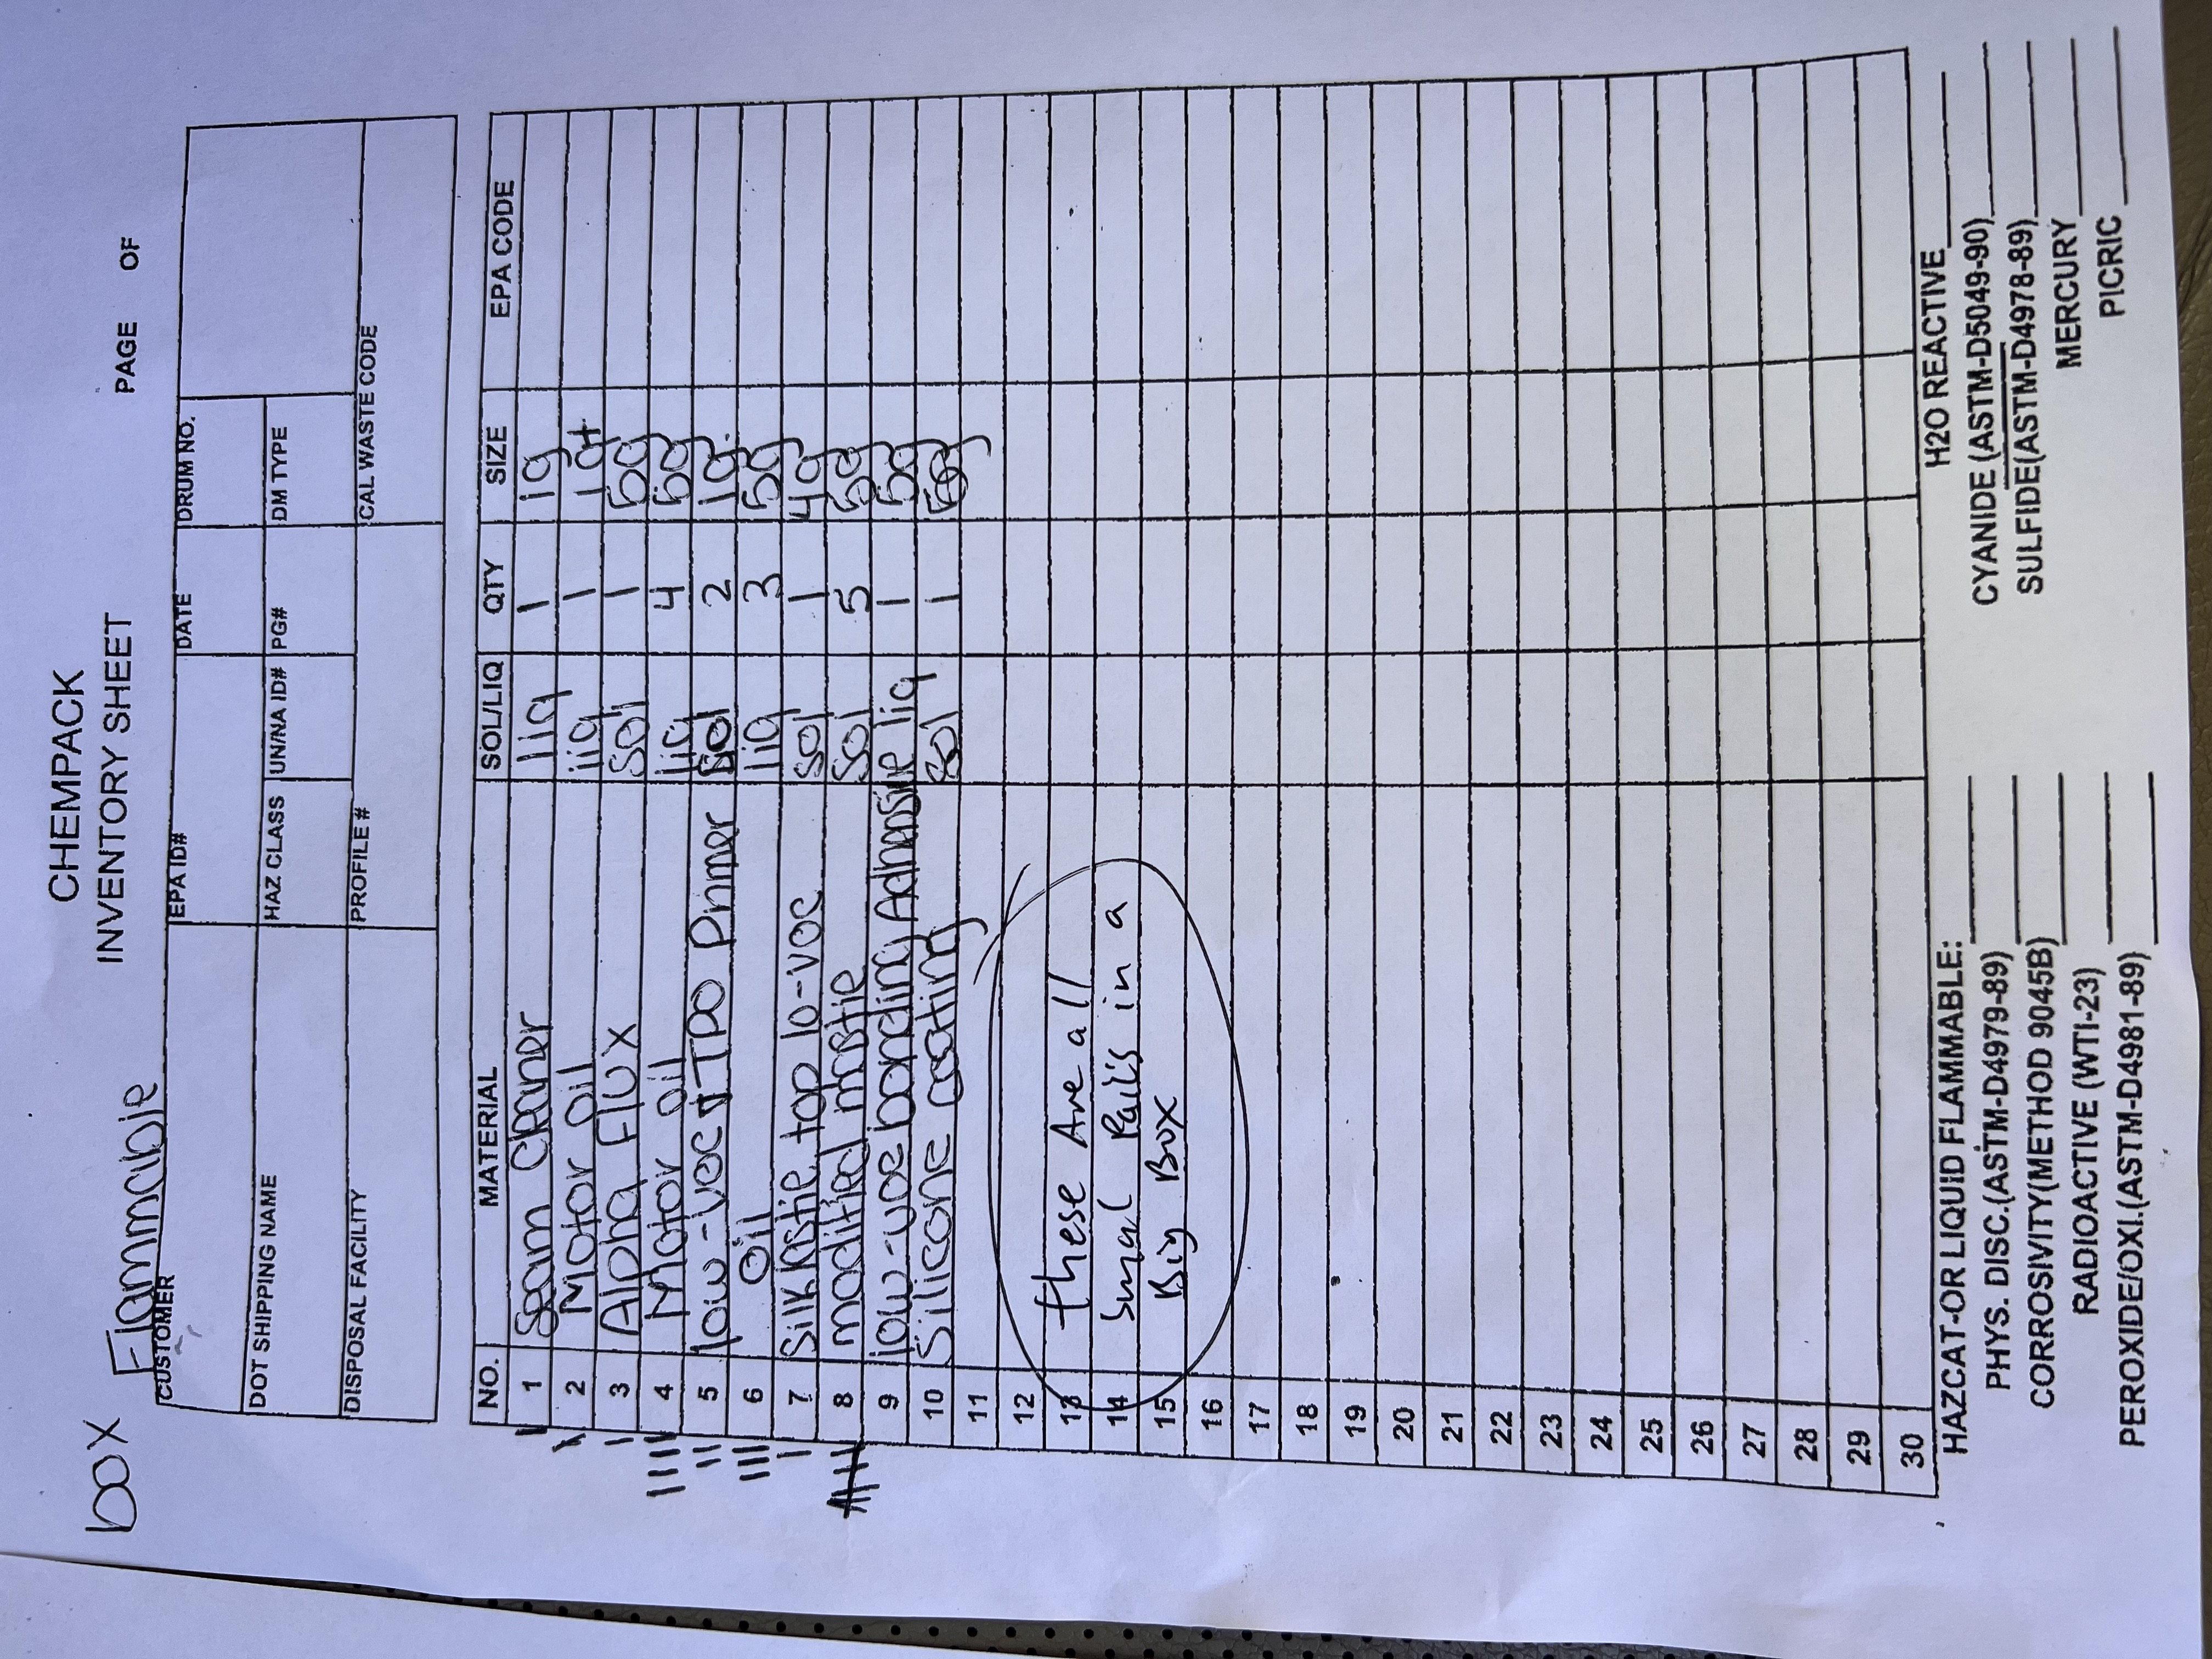 CHEMPACK
INVENTORY SHEET
PAGE OF
box Flammable
CUSTOMER
EPA ID#
DATE
DRUM NO.
DOT SHIPPING NAME
HAZ CLASS
UN/NA ID#
PG#
DM TYPE
DISPOSAL FACILITY
PROFILE #
CAL WASTE CODE
NO. MATERIAL SOL/LIQ QTY SIZE EPA CODE
1 Seam cleaner liq 1 1g
2 Motor oil liq 1 1qt
3 Alpha Flux Sol 1 5g
4 Motor oil liq 4 5g
5 low-voc TPO Primer sol 2 1g.
6 Oil liq 3 5g
7 Silklastic top lo-voc sol 1 4g
8 modified mastic Sol 5 5g
9 low-voc bonding Adhensive liq 1 5g
10 Silicone coating sol 1
11
12
13 these Are all
14 Smal Pails in a
15 Big Box
16
17
18
19
20
21
22
23
24
25
26
27
28
29
30
HAZCAT-OR LIQUID FLAMMABLE: H2O REACTIVE
PHYS. DISC.(ASTM-D4979-89) CYANIDE (ASTM-D5049-90)
CORROSIVITY(METHOD 9045B) SULFIDE(ASTM-D4978-89)
RADIOACTIVE (WTI-23) MERCURY
PEROXIDE/OXI.(ASTM-D4981-89) PICRIC